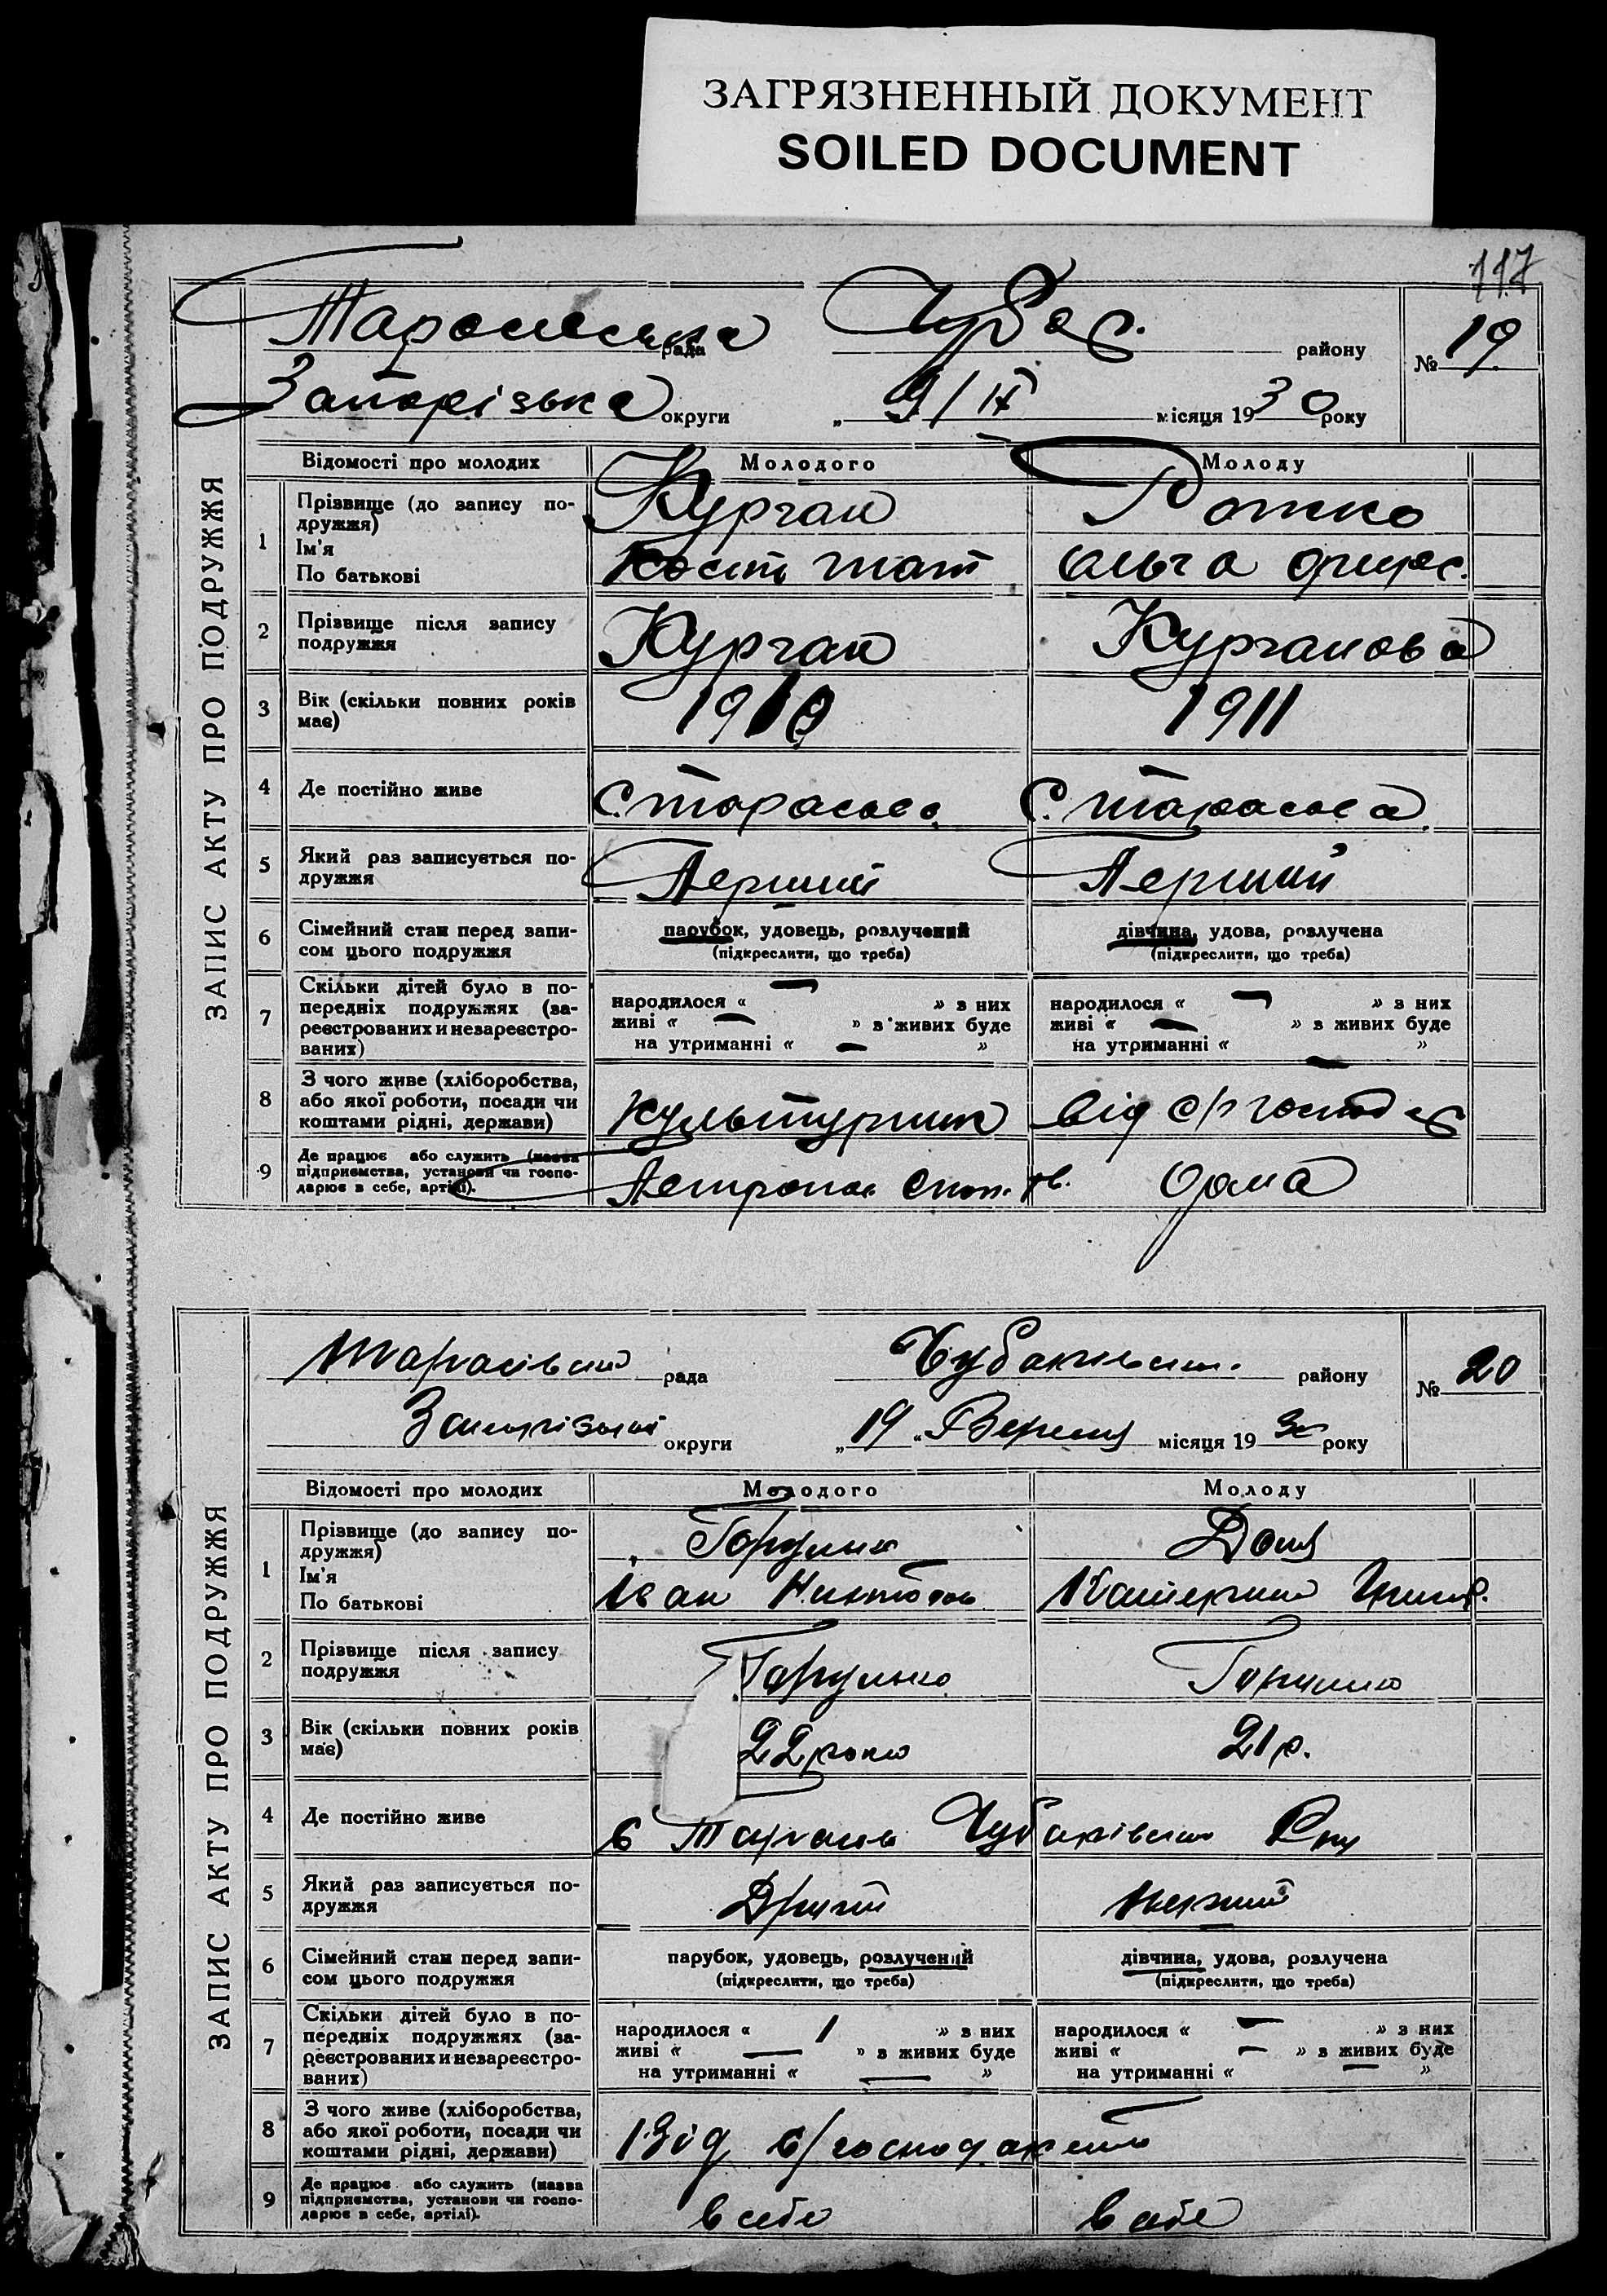 ЗАГРЯЗНЕННЫЙ ДОКУМЕНТ
SOILED DOCUMENT
117
ЗАПИС АКТУ ПРО ПОДРУЖЖЯ
рада Чубар. району № 19
Запорізька округи „ 9/IX місяця 1930 року
Відомості про молодих Молодого Молоду
1 Прізвище (до запису по-
дружжя) Курган
Ім'я
По батькові Кость Ольга
2 Прізвище після запису
подружжя Курган Курганова
3 Вік (скільки повних років
має) 1910 1911
4 Де постійно живе С. Тарасова
5 Який раз записується по-
дружжя Перший Перший
6 Сімейний стан перед запи-
сом цього подружжя парубок, удовець, розлучений дівчина, удова, розлучена
(підкреслити, що треба) (підкреслити, що треба)
7 Скільки дітей було в по-
передніх подружжях (за-
реєстрованих и незареєстро-
ваних)
народилося « — » з них народилося « — » з них
живі « — » з живих буде живі « — » з живих буде
на утриманні « — » на утриманні « — »
8 З чого живе (хліборобства,
або якої роботи, посади чи
коштами рідні, держави) культурник Від с/господар
9 Де працює або служить (назва
підприємства, установи чи госпо-
дарює в себе, артілі).
ЗАПИС АКТУ ПРО ПОДРУЖЖЯ
рада району № 20
округи „ 19 “ Вересня місяця 1930 року
Відомості про молодих Молодого Молоду
1 Прізвище (до запису по-
дружжя)
Ім'я
По батькові Іван Катерина
2 Прізвище після запису
подружжя
3 Вік (скільки повних років
має) 22 роки 21 р.
4 Де постійно живе
5 Який раз записується по-
дружжя Другий перший
6 Сімейний стан перед запи-
сом цього подружжя парубок, удовець, розлучений дівчина, удова, розлучена
(підкреслити, що треба) (підкреслити, що треба)
7 Скільки дітей було в по-
передніх подружжях (за-
реєстрованих и незареєстро-
ваних)
народилося « 1 » з них народилося « — » з них
живі « — » з живих буде живі « — » з живих буде
на утриманні « — » на утриманні « — »
8 З чого живе (хліборобства,
або якої роботи, посади чи
коштами рідні, держави) Від с/господарства
9 Де працює або служить (назва
підприємства, установи чи госпо-
дарює в себе, артілі). в себе в себе